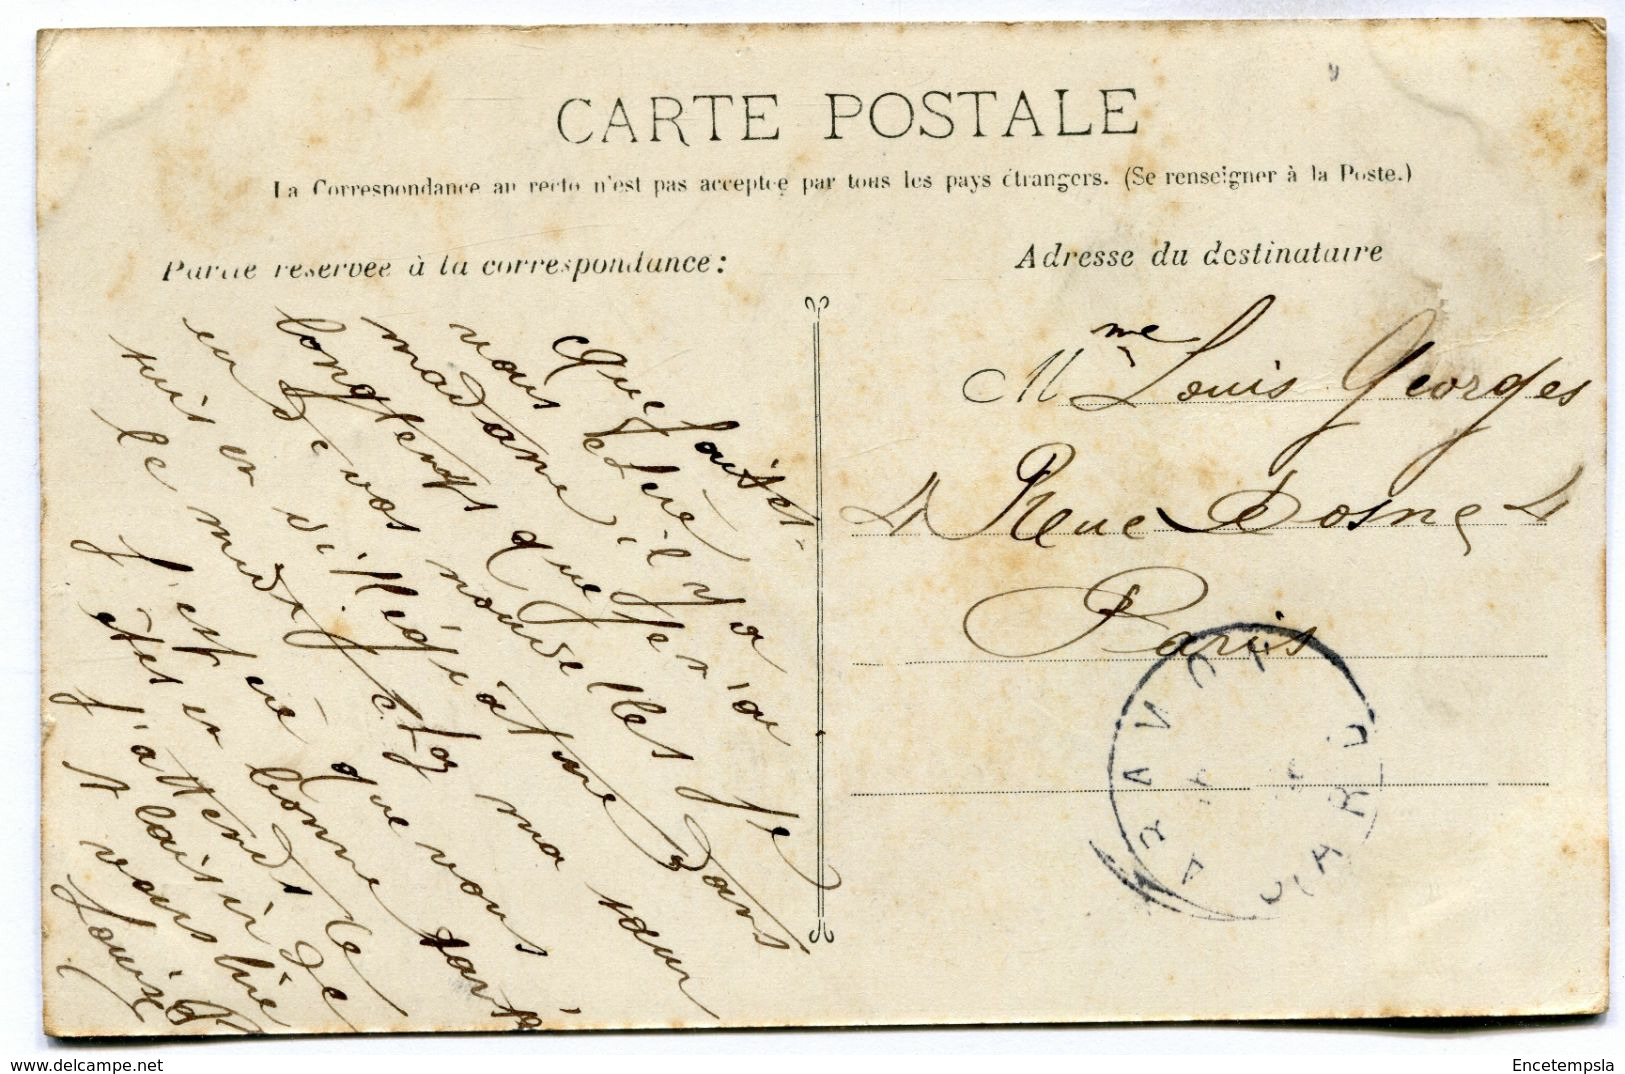 CARTE POSTALE
La Correspondance au recto n'est pas acceptée par tous les pays étrangers. (Se renseigner à la Poste.)
Partie réservée à la correspondance:
Adresse du destinataire
Que faites-
vous l'été
madame, il y a
longtemps que je n'ai
eu de vos nouvelles je
suis en villégiature dans
le midi chez ma sœur
j'est vé que vous
êtes en bonne santé
j'attends le
plaisir de
vous lire
Louise
Mme Louis Georges
4 Rue Dosne 4
Paris
GARD
Encetempsla